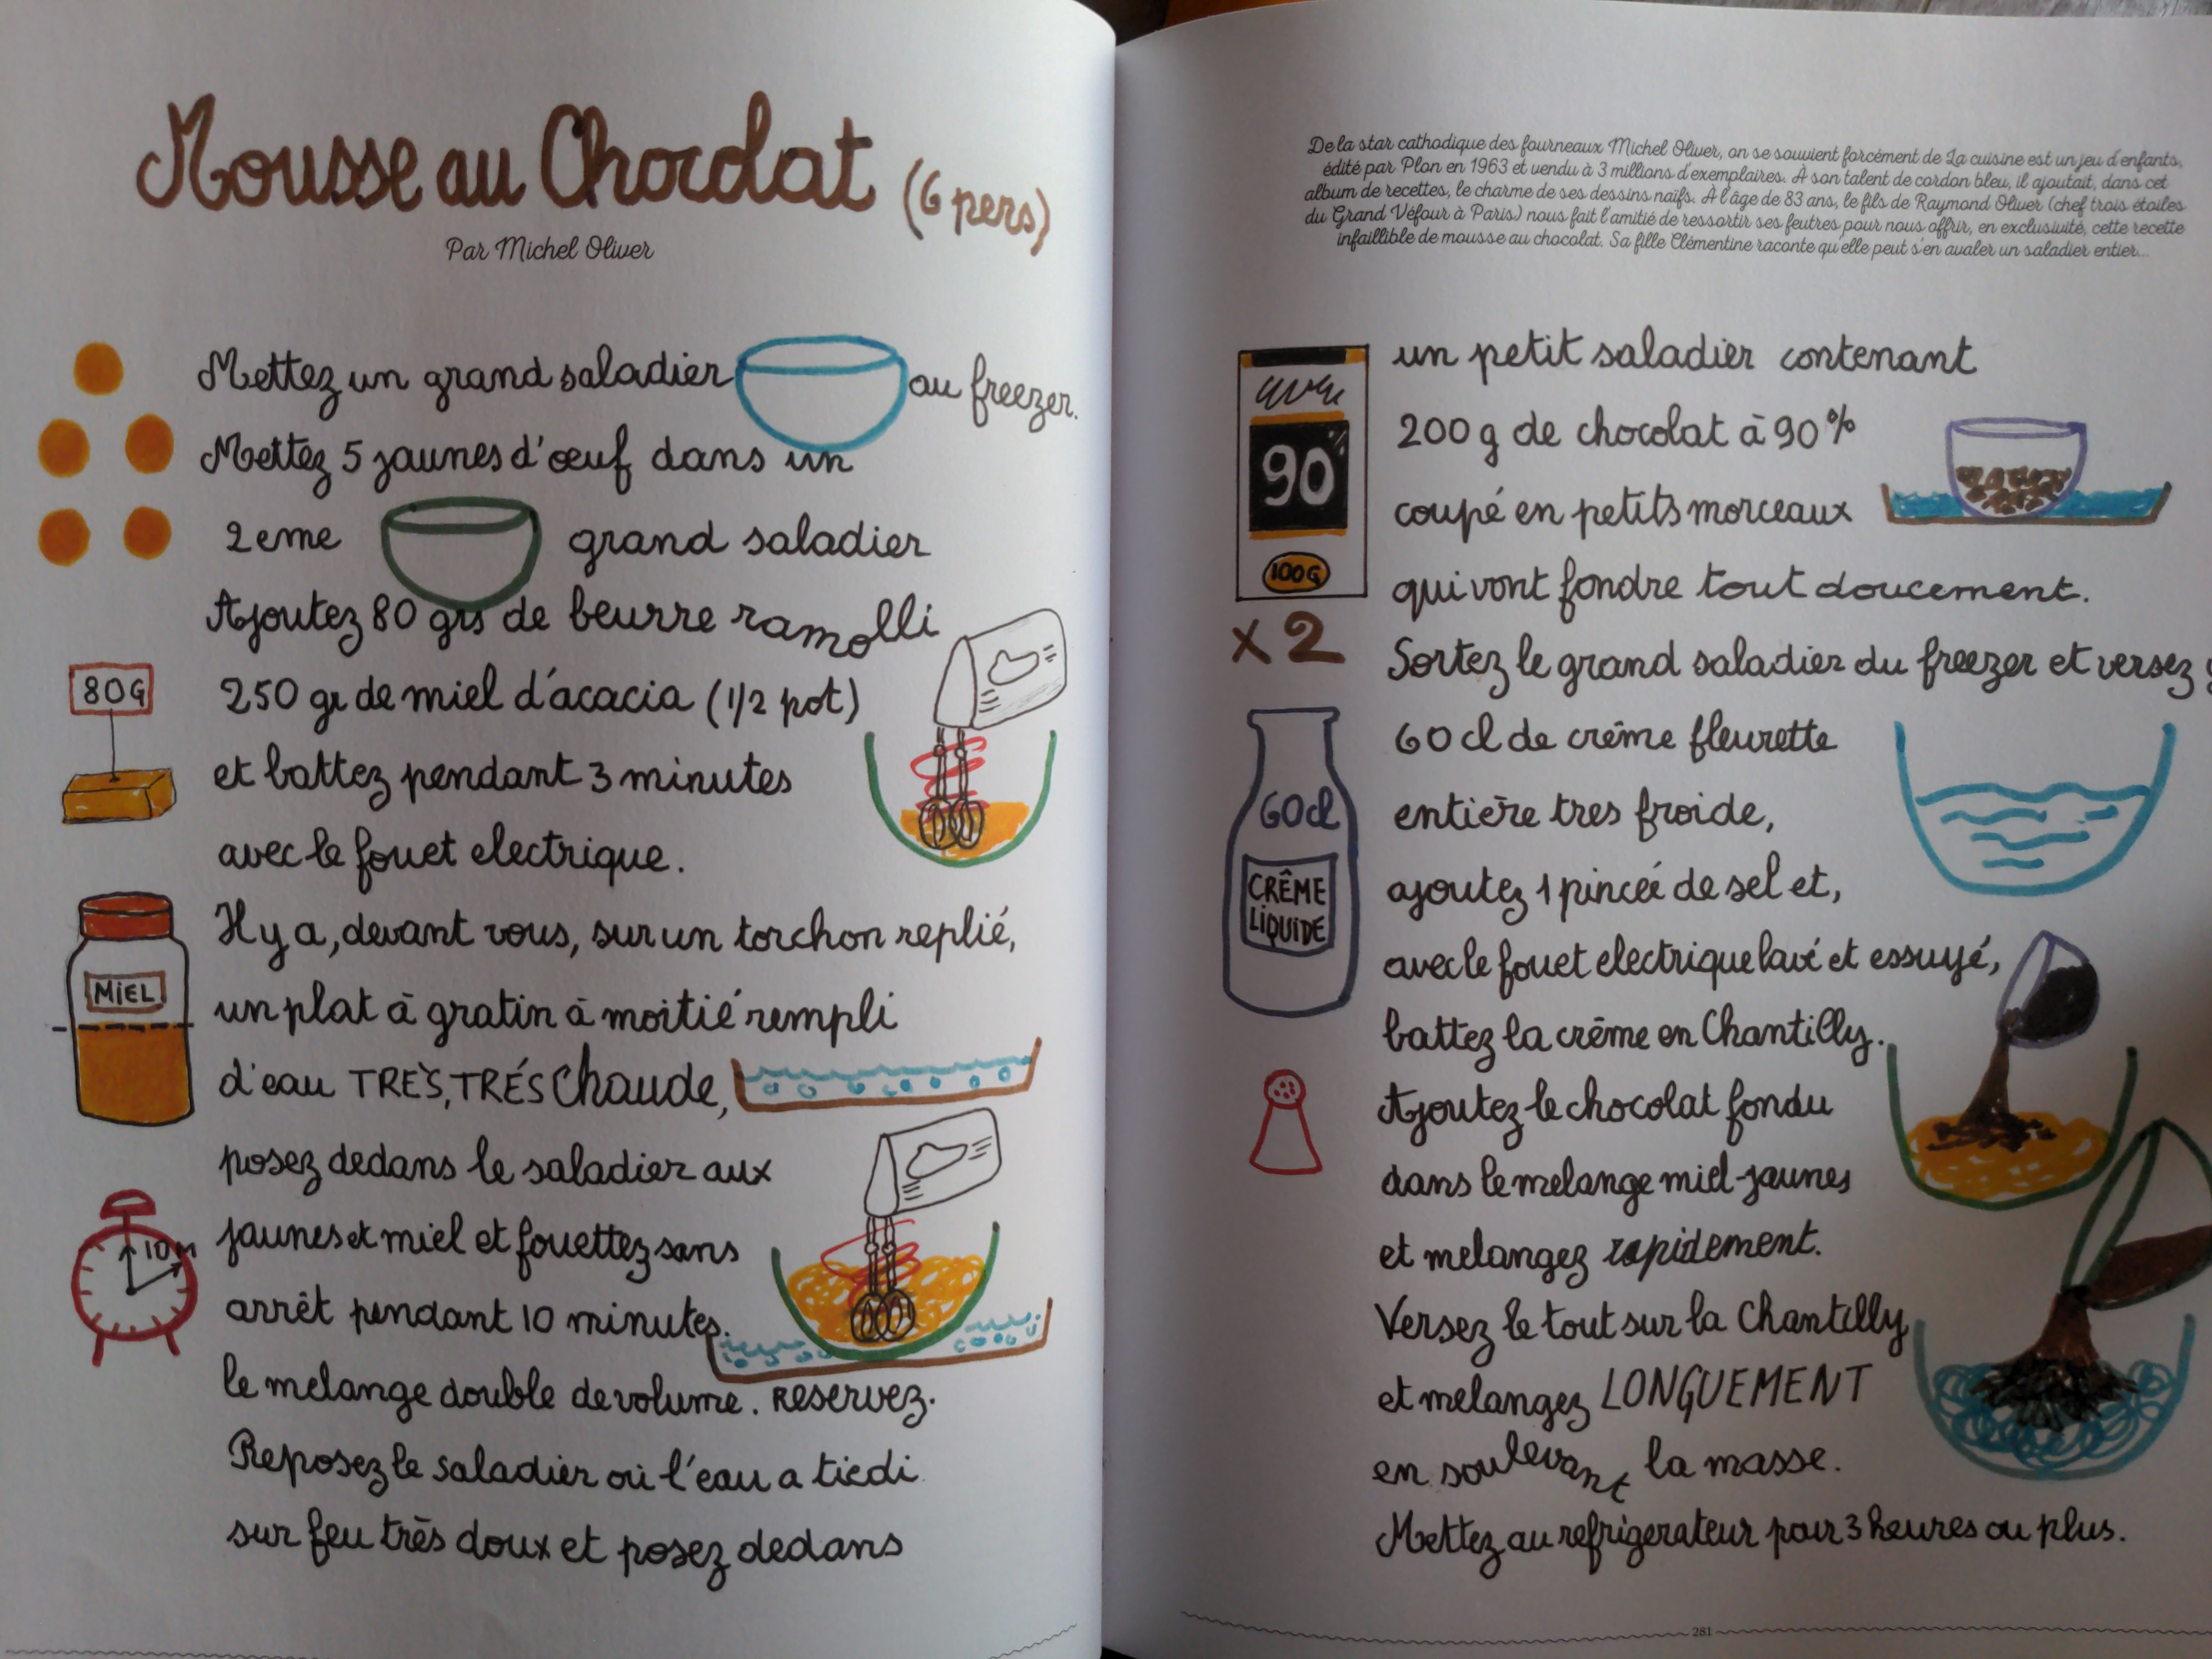 Mousse au Chocolat (6 pers)
Par Michel Oliver
Mettez un grand saladier au freezer.
Mettez 5 jaunes d'œuf dans un
2eme grand saladier
Ajoutez 80 grs de beurre ramolli
80G
250 gr de miel d'acacia (1/2 pot)
et battez pendant 3 minutes
avec le fouet electrique.
Il y a, devant vous, sur un torchon replié,
MIEL
un plat à gratin à moitié rempli
d'eau TRÈS, TRÉS Chaude,
posez dedans le saladier aux
jaunes et miel et fouettez sans
10 M
arrêt pendant 10 minutes.
le melange double de volume. RESERVEZ.
Reposez le saladier où l'eau a tiedi
sur feu très doux et posez dedans
De la star cathodique des fourneaux Michel Oliver, on se souvient forcément de La cuisine est un jeu d'enfants,
édité par Plon en 1963 et vendu à 3 millions d'exemplaires. À son talent de cordon bleu, il ajoutait, dans cet
album de recettes, le charme de ses dessins naïfs. À l'âge de 83 ans, le fils de Raymond Oliver (chef trois étoiles
du Grand Véfour à Paris) nous fait l'amitié de ressortir ses feutres pour nous offrir, en exclusivité, cette recette
infaillible de mousse au chocolat. Sa fille Clémentine raconte qu'elle peut s'en avaler un saladier entier...
un petit saladier contenant
200 g de chocolat à 90%
90%
coupé en petits morceaux
100G
qui vont fondre tout doucement.
x 2
Sortez le grand saladier du freezer et versez
60 cl de crême fleurette
60 cl
entière tres froide,
CRÊME
LIQUIDE
ajoutez 1 pinceé de sel et,
avec le fouet electrique lavé et essuyé,
battez la crême en Chantilly.
Ajoutez le chocolat fondu
dans le melange miel-jaunes
et melangez rapidement.
Versez le tout sur la Chantilly
et melangez LONGUEMENT
en soulevant la masse.
Mettez au refrigerateur pour 3 heures ou plus.
281